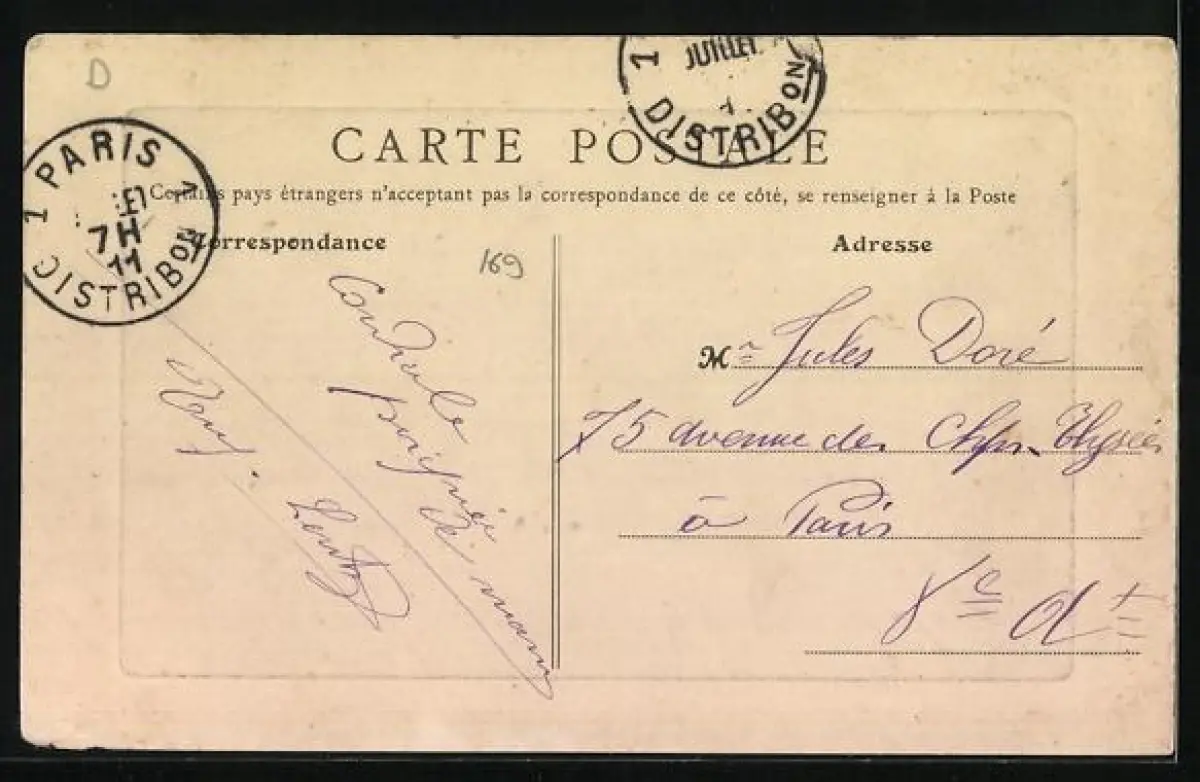 D
1 PARIS
7H
11
DISTRIBON
1 JUILLET
DISTRIBON
CARTE POSTALE
Certains pays étrangers n'acceptant pas la correspondance de ce côté, se renseigner à la Poste
Correspondance
169
Cordiale
poignée
de main
Adresse
Mr Jules Doré
75 avenue des Chps. Elysées
à Paris
8e dt